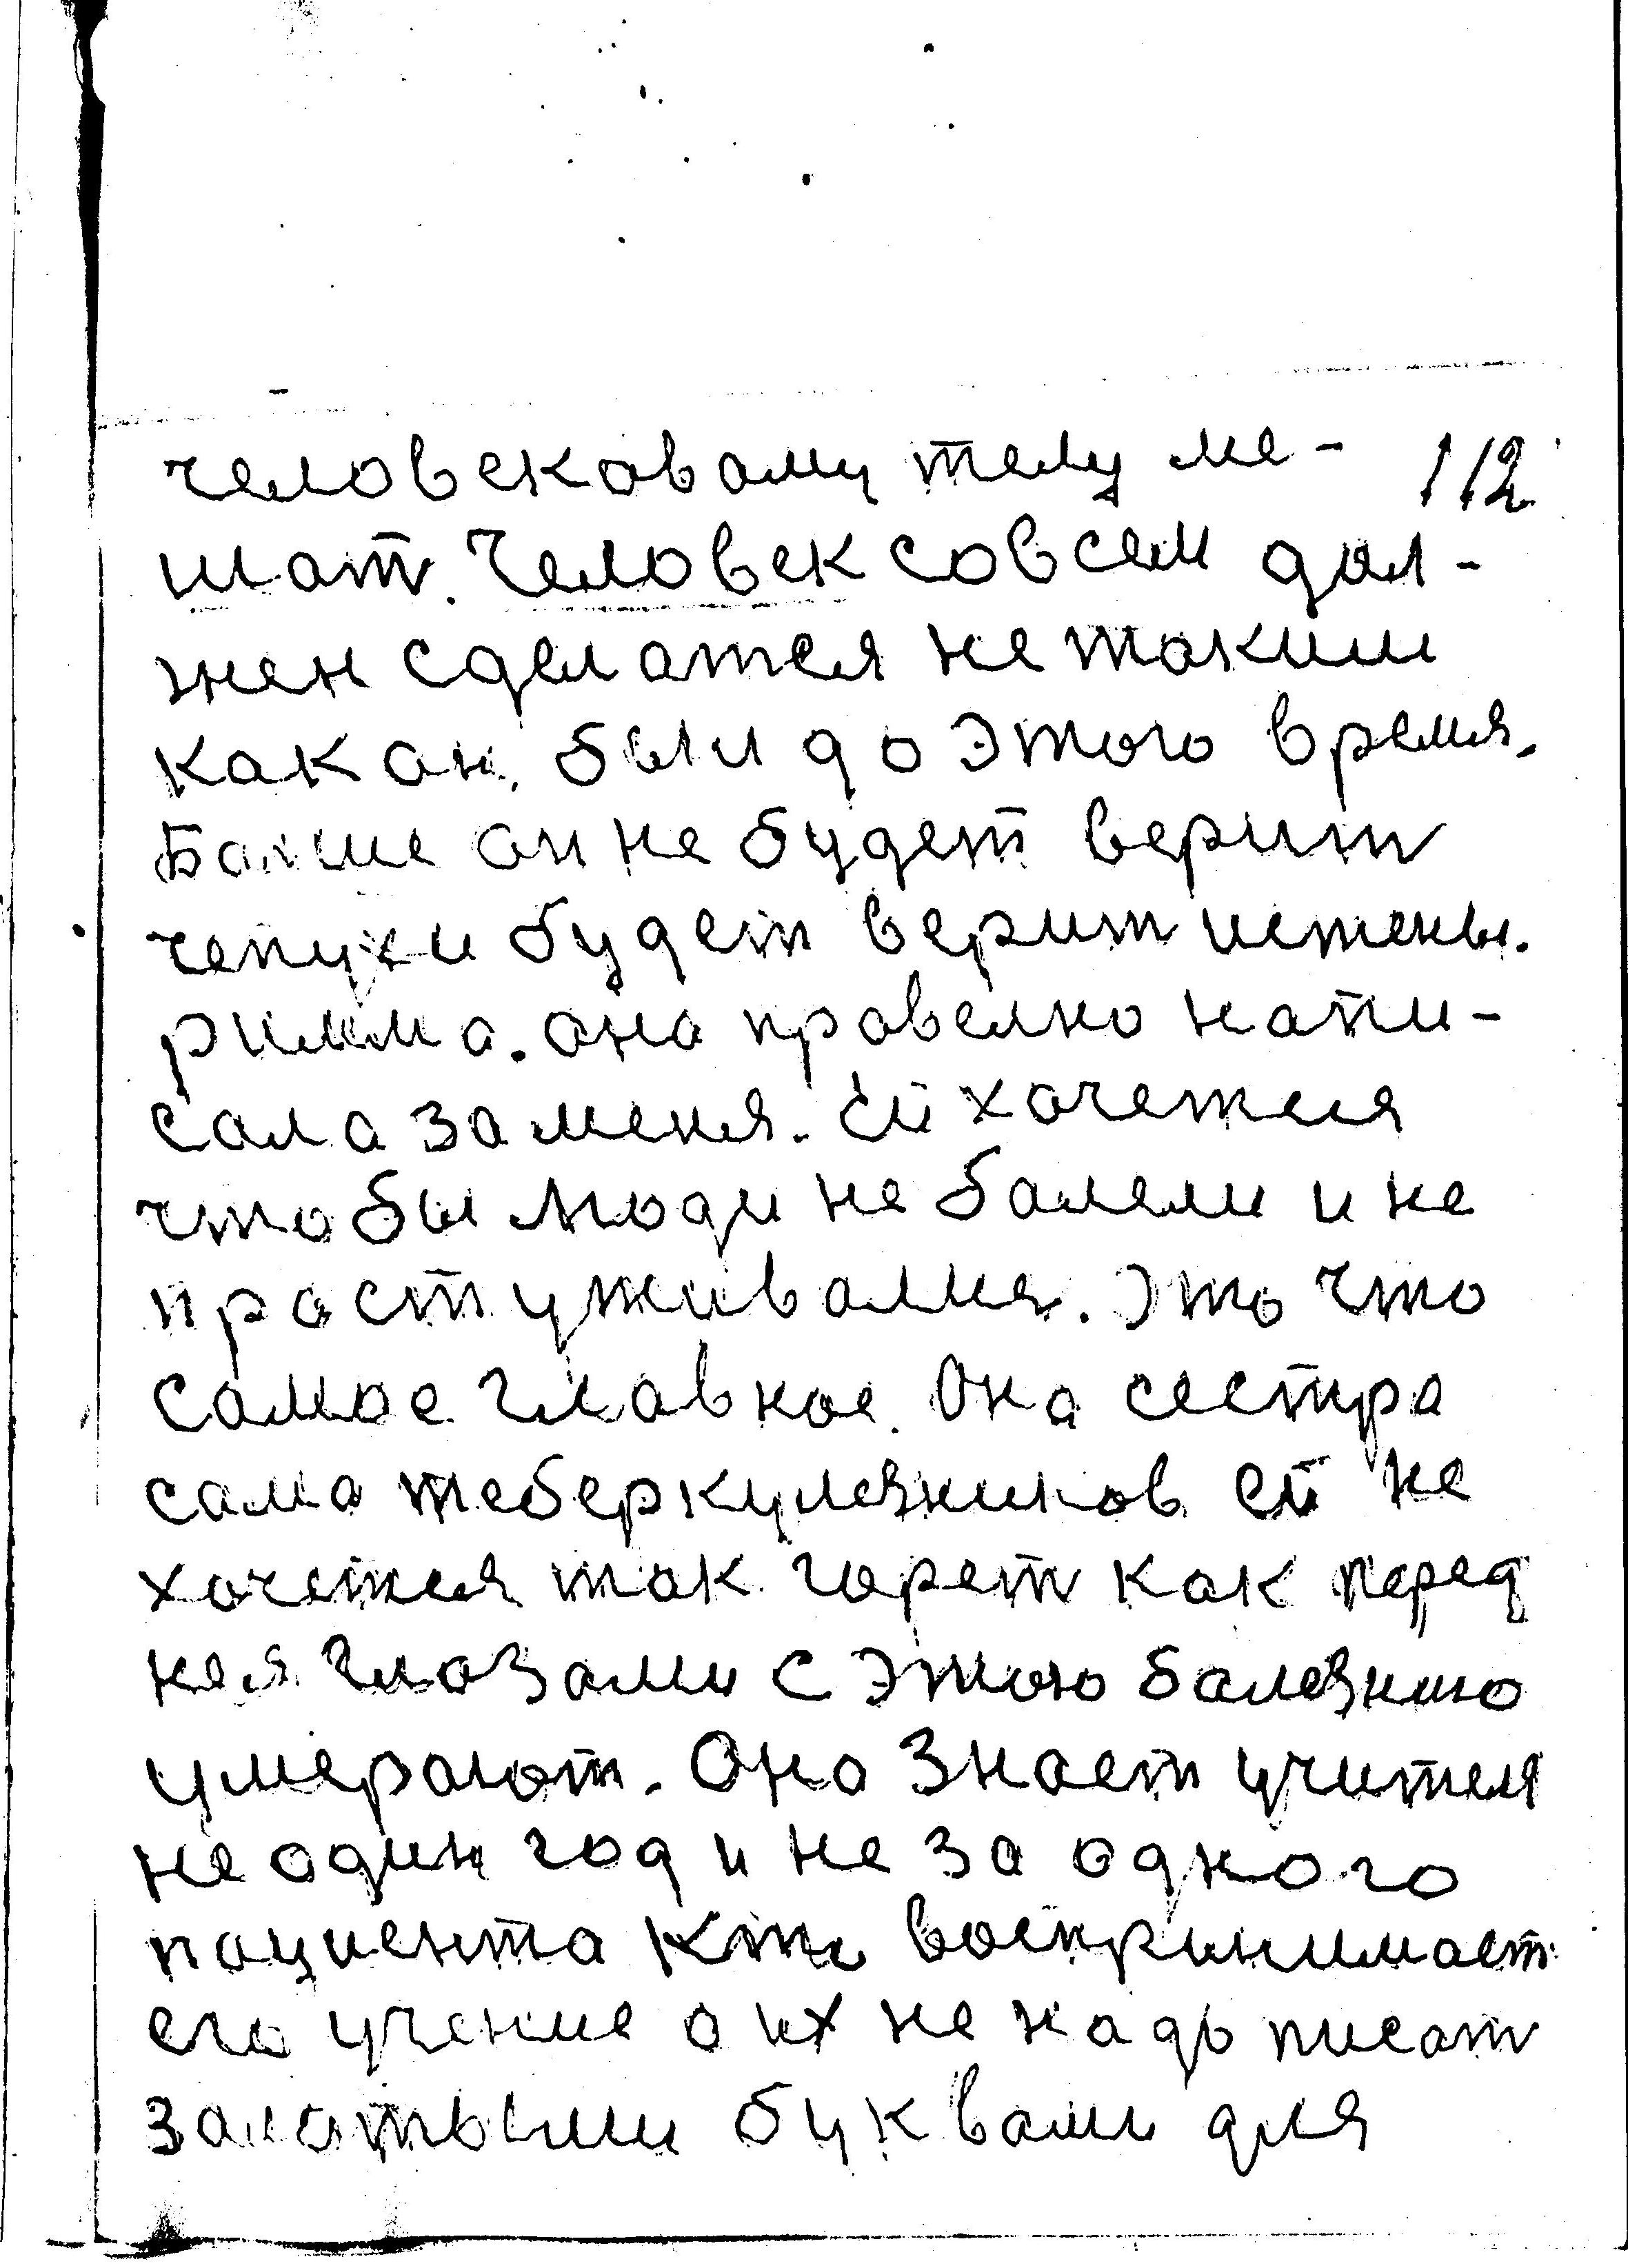 человековому телу ме- 112
шат. Человек совсем дол-
жен сделатся не таким
как он, был до этого время.
Болше он не будет верит
чепухи будет верит истены.
римма. она провелно напи-
сала за меня. Ей хочетися
чтобы люди не болели и не
простуживалися. Это что
самое главное. Она сестра
сама теберкулезников ей не
хочется так горет как перед
нея глазами с этою болезнию
умерают. Она знает учителя
не один год и не за одного
пациента Кто воспринимает
его учение о их не надо писат
залатыми буквами для